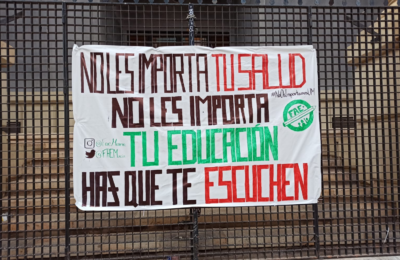 NO LES IMPORTA TU SALUD
NO LES IMPORTA
TU EDUCACIÓN
HAS QUE TE ESCUCHEN